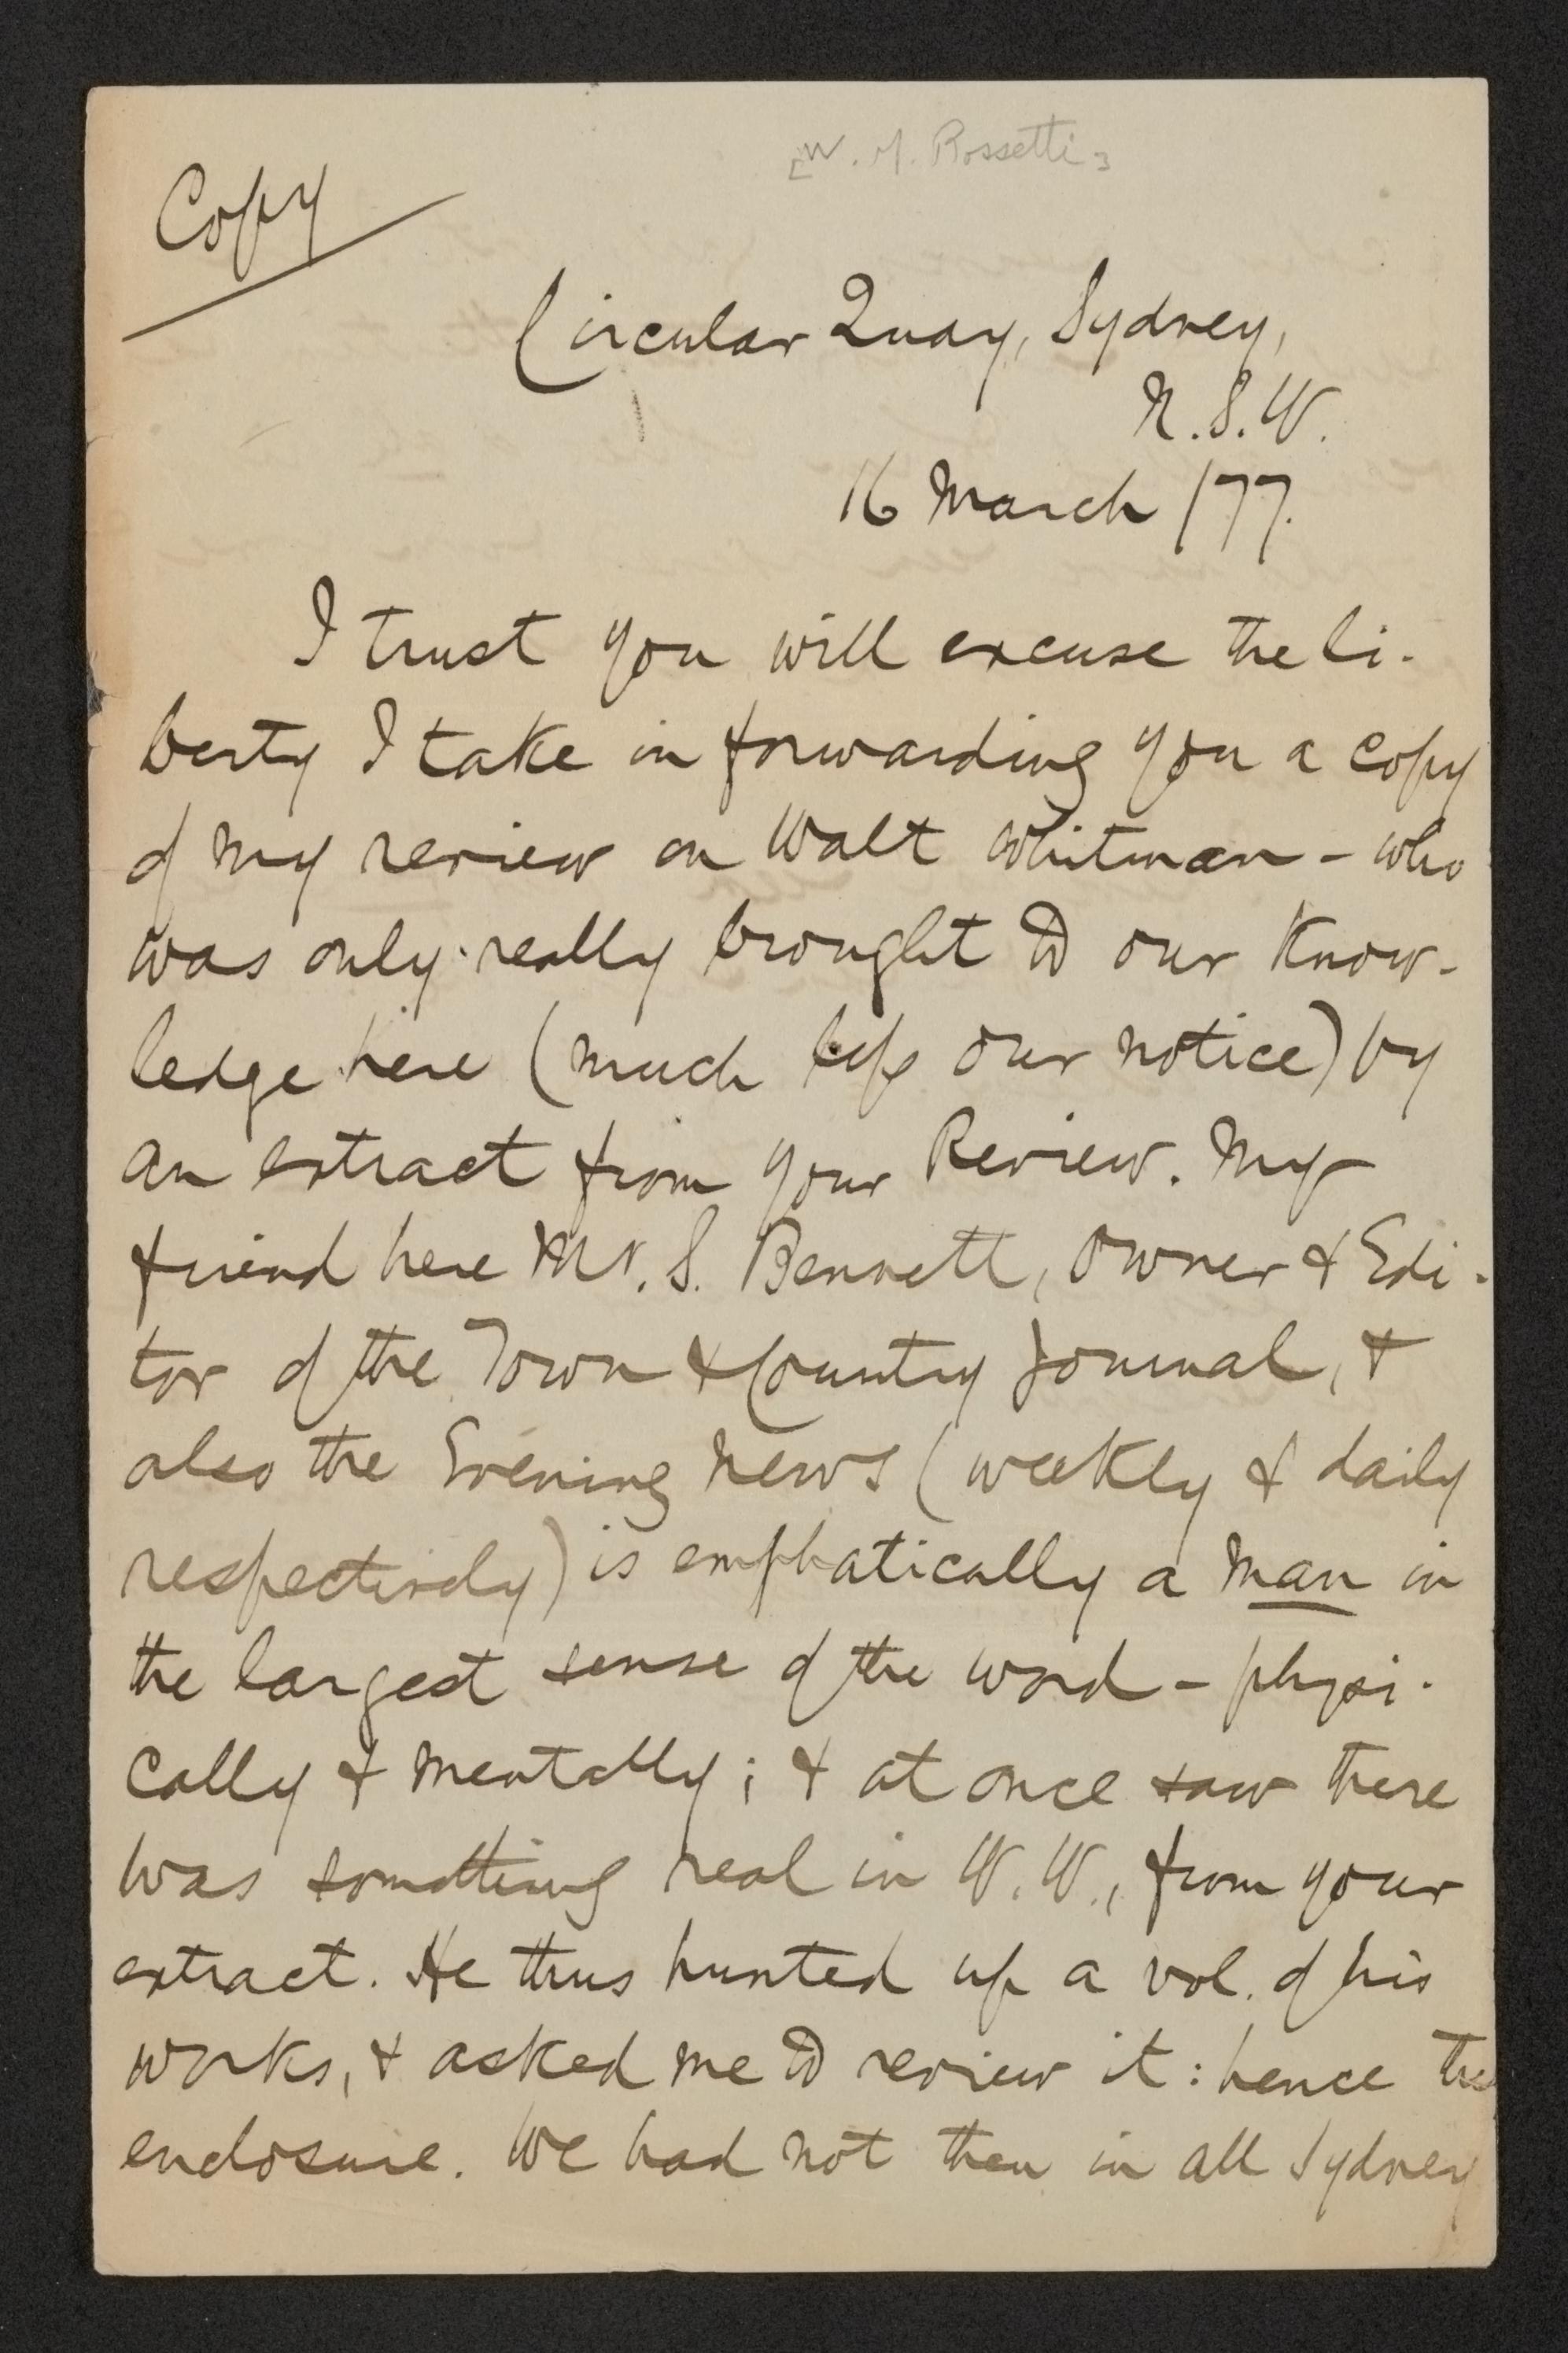 [W. M. Rossetti]
Copy
Circular Quay, Sydney,
N.S.W.
16 March /77.
I trust you will excuse the li-
berty I take in forwarding you a copy
of my review on Walt Whitman - who
was only really brought to our know-
ledge here (much less our notice) by
an extract from your Review. My
friend here Mr. S. Bennett, owner & Edi-
tor of the Town & Country Journal, &
also the Evening News (weekly & daily
respectively) is emphatically a man in
the largest sense of the word - physi-
cally & mentally; & at once saw there
was something real in W.W., from your
extract. He thus hunted up a vol. of his
works, & asked me to review it: hence the
enclosure. We had not then in all Sydney